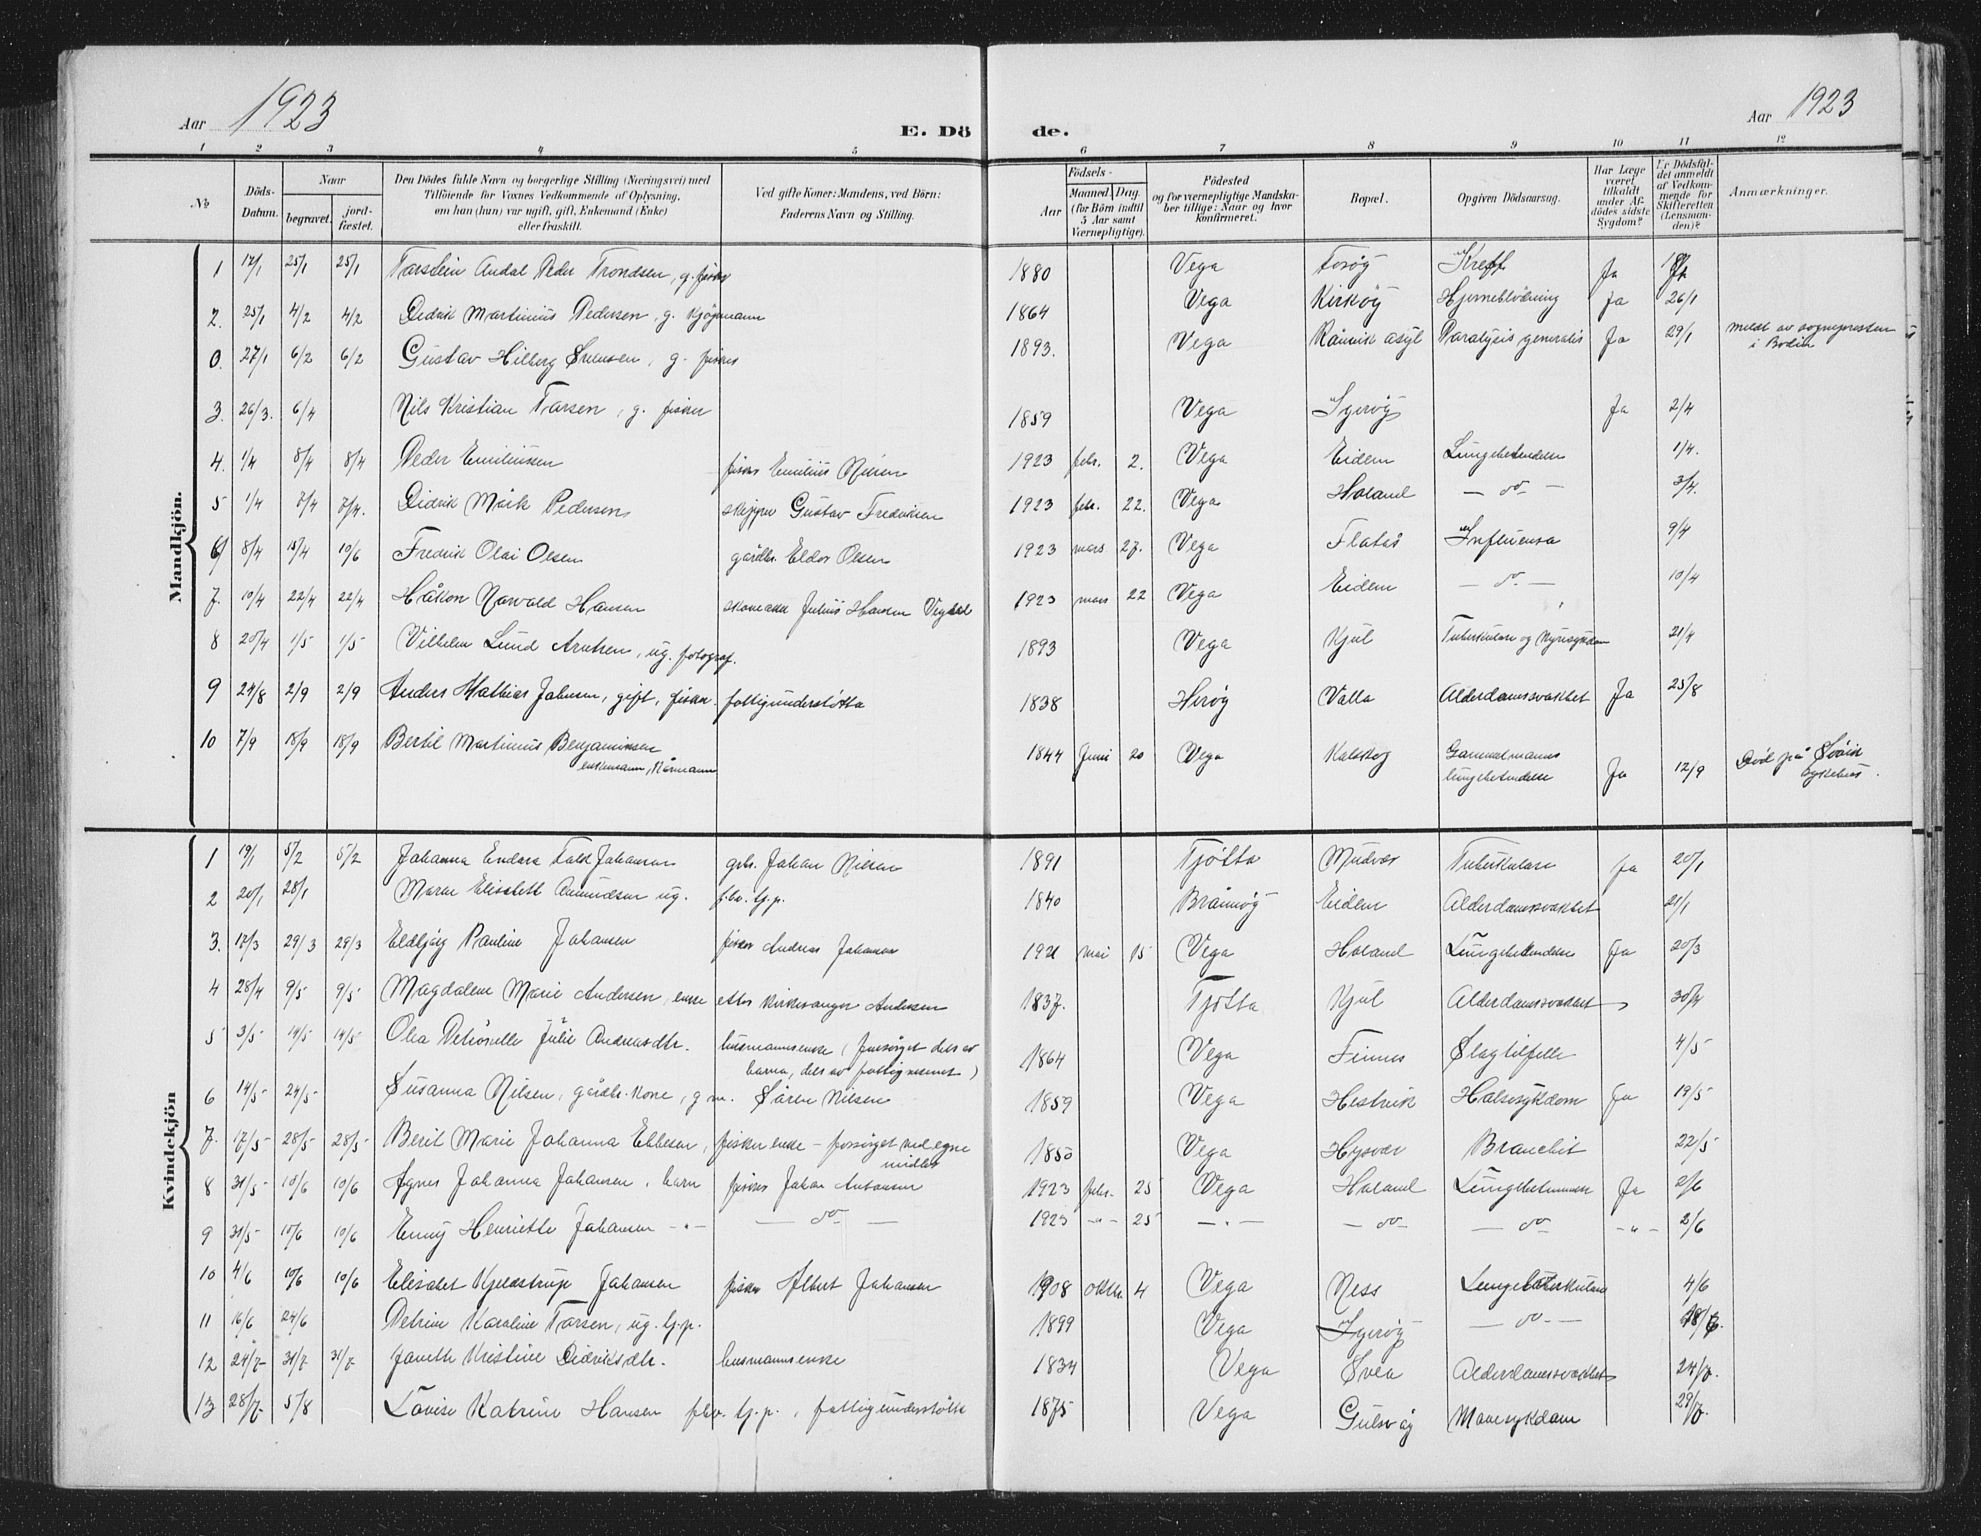 Aar 1923
E. Dö
de.
Aar 1923
1 2 3 4 5 6 7 8 9 10 11 12
No
Döds-Datum.
Naar
begravet.
jord-fæstet.
Den Dödes fulde Navn og borgerlige Stilling (Næringsvei) med
Tilföiende for Voxnes Vedkommende af Oplysning,
om han (hun) var ugift, gift, Enkemand (Enke)
eller fraskilt.
Ved gifte Koner: Mandens, ved Börn:
Faderens Navn og Stilling.
Födsels-
Aar
Maaned Dag.
(for Börn indtil
5 Aar samt
Værnepligtige).
Födested
og for værnepligtige Mandska-
ber tillige: Naar og hvor
konfirmeret.
Bopæl.
Opgiven Dödsaarsag.
Har Læge
været
tilkaldt
under Af-
dödes sidste
Sygdom?
Er Dödsfal-
det anmeldt
af Vedkom-
mende for
Skifteretten
(Lensman-
den)?
Anmærkninger.
Mandkjön.
1 17/1 25/1 25/1 Peder Trondsen, g. fisker 1880 Vega Kreft Ja
2. 25/1 4/2 4/2 Didrik Martinus Pedersen, g. kjøpmann 1864 Vega Kirkøy Hjerneblödning Ja 26/1
0. 27/1 6/2 6/2 Gustav Hilberg Sørensen, g. fisker 1893. Vega Rønvik asyl Paralysis generalis Ja 29/1 meldt av sognepresten
i Bodin
3. 26/3. 6/4 Nils Kristian Tarsen, g. fisker 1859 Vega Igerøy Ja 2/4
4. 1/4 8/4 8/4 Peder Emiliussen fisker Emilius Nilsen 1923 febr. 2. Vega Eidem Lungebetendelse 1/4.
5 1/4 7/4 7/4. Didrik Pedersen skipper Gustav Fredriksen 1923 febr. 22. Vega Holand — do — 3/4.
6 8/4 15/4 10/6 Fredrik Olai Olsen gårdbr. Eldor Olsen 1923 mars 27. Vega Flatås Influensa 9/4
7. 10/4 22/4 22/4 Håkon Hansen skomaker Julius Hansen 1923 mars 22 Vega Eidem — do. — 10/4
8 20/4 1/5 1/5 Vilhelm Lund Arntzen, ug. fotograf. 1893 Vega Kjul Tuberkulose og Nyresykdom 21/4
9 24/8 2/9 2/9 Anders Mathias Johnsen, gift, fisker. fattigunderstøtta 1838 Herøy Valla Alderdomssvakhet Ja 25/8
10 7/9 18/9 18/9 Bertil Martinus Benjaminsen
enkemann, kårmann 1844 Juni 20 Vega Kalskog Gammelmanns
lungebetendelse Ja 12/9 Död på
sykehus.
Kvindekjön
1 19/1 5/2 5/2 Johanna Endora Johansen grbr. Johan Nilsen 1891 Tjøtta Mudvær Tuberkulose ja 20/1
2 20/1 28/1 Maren Elisabeth Amundsen ug. fhv. tj.p. 1840 Brønnøy Eidem Alderdomssvakhet 21/1
3. 17/3 29/3 29/3 Eldbjørg Pauline Johansen fisker Andreas Johansen 1921 mai 15 Vega Holand Lungebetendelse Ja 20/3
4 28/4 9/5 9/5 Magdalene Marie Andersen, enke etter kirkesanger Andersen 1837. Tjøtta Kjul Alderdomssvakhet 30/4
5 3/5 14/5 14/5 Olea Petronelle Julie Andreasdtr. husmannsenke (forsørget dels av
barna, dels av fattigvesenet) 1864 Vega Finnes Slagtilfelle 4/5
6 14/5 24/5 Susanna Nilsen, gårdbr. kone, g. m. Sören Nilsen 1859 Vega Hestvik Halssykdom Ja 19/5
7. 17/5 28/5 28/5 Berit Marie Johanna Ebbesen, fisker enke - forsörget ved egne
midler 1850 Vega Hysvær Bronchit 22/5
8 31/5 10/6 10/6 Agnes Johanna Johansen, barn fisker Johan Antonsen 1923 febr. 25 Vega Holand Lungebetennelse Ja 2/6
9 31/5 10/6 10/6 Enny Henriette Johansen -"- — do — 1923 -"- 25 -"- — do — — do — -"- 2/6
10 4/6 10/6 10/6 Elisabet Kjeldstrup Johansen fisker Albert Johansen 1908 oktbr. 4 Vega Ness Lungetuberkulose 4/6
11 16/6 24/6 Petrine Karoline Tarsen, ug. tj.p. 1899 Vega Igerøy — do — 18/6
12 24/7 31/7 31/7 Janeth Kristine Didriksdtr. husmannsenke 1834 Vega Svea Alderdomssvakhet 24/7.
13 28/7 5/8 Lovise Katrine Hansen fhv. tj.p., fattigunderstøtt 1875 Vega Gulsvåg Mavesykdom 29/7.